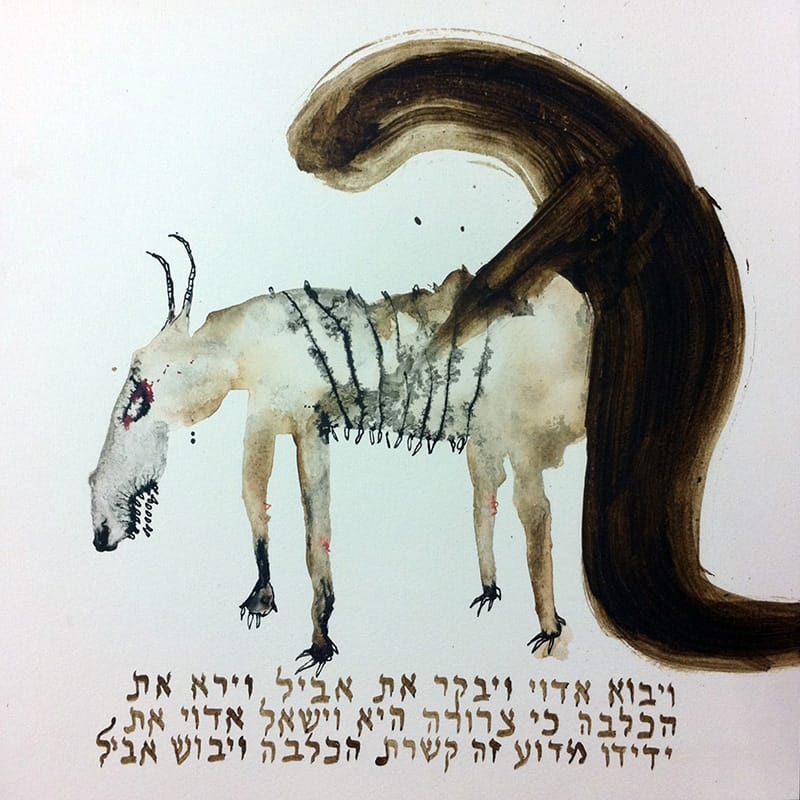 ויבוא אדוי ויבקר את אביל וירא את
הכלבה כי צרורה היא וישאל אדוי את
ידידו מדוע זה קשרת הכלבה ויבוש אביל